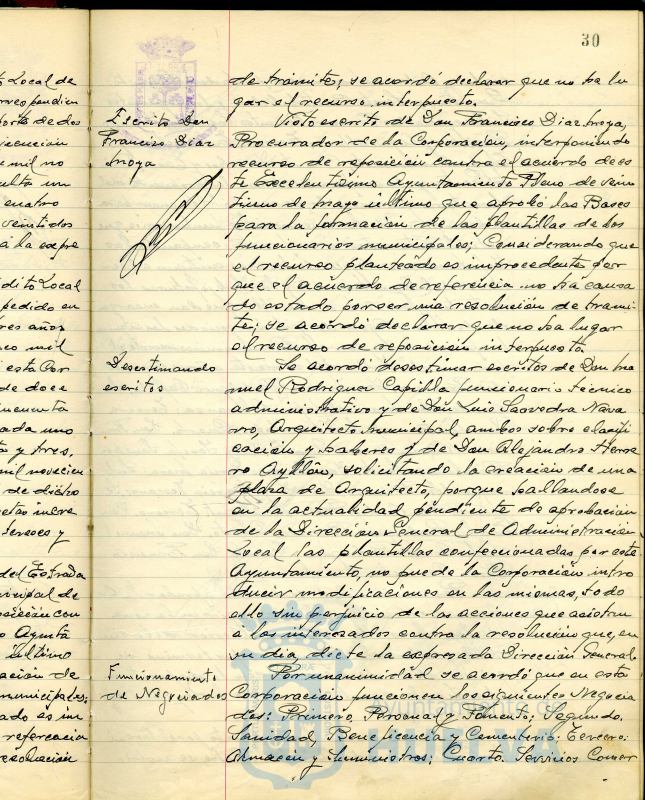 30
Local de
cuatro
veintidos
á la expre
dito Local
pedido en
tres años
mil
está Cor
de doce
cada uno
y tres,
mil novecien
de dicho
del Estrada
municipal de
Ayunta
último
ación de
municipales;
ado es im
referencia
resolución
Escrito Don
Francisco Diaz
Inoya
Desestimando
escritos
Funcionamiento
de Negociados
de trámite; se acordó declarar que no ha lu
gar el recurso interpuesto.
Visto escrito de Don Francisco Diaz Inoya,
Procurador de la Corporación, interponiendo
recurso de reposición contra el acuerdo de es
te Excelentísimo Ayuntamiento Pleno de vein
tiuno de mayo último que aprobó las Bases
para la formación de las plantillas de los
funcionarios municipales; Considerando que
el recurso planteado es improcedente por
que el acuerdo de referencia no ha causa
do estado por ser una resolución de trami
te; se acordó declarar que no ha lugar
el recurso de reposición interpuesto
Se acordó desestimar escritos de Don Ma
nuel Rodriguez Capilla funcionario técnico
administrativo y de Don Luis Saavedra Nava
rro, Arquitecto municipal, ambos sobre clasifi
cación y haberes y de Don Alejandro Herre
ro Ayllón, solicitando la creación de una
plaza de Arquitecto, porque hallandose
en la actualidad pendiente de aprobación
de la Dirección General de Administración
Local las plantillas confeccionadas por este
Ayuntamiento, no puede la Corporación intro
ducir modificaciones en las mismas, todo
ello sin perjuicio de las acciones que asistan
a los interesados contra la resolución que, en
su dia dicte la expresada Dirección General.
Por unanimidad se acordó que en esta
Corporación funcionen los siguientes Negocia
dos: Primero, Personal y Fomento; Segundo.
Sanidad, Beneficencia y Cementerio; Tercero:
Almacen y Suministros; Cuarto. Servicios Comer
ayuntamiento de
HUELVA